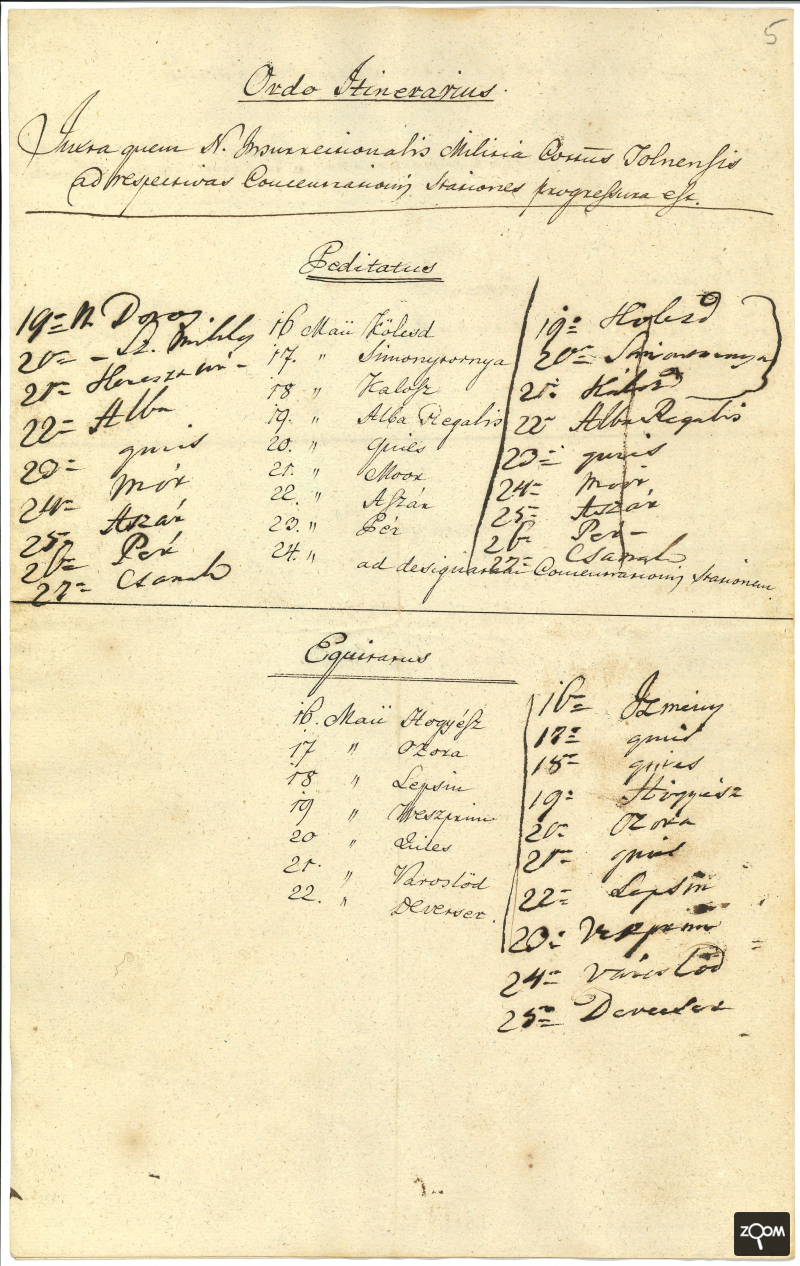 5
Ordo Itinerarius.
Juxta quem N. Insurrectionalis Militia Cottus Tolnensis
ad respectivas Concentrationis Stationes progressura est.
Peditatus
19= N Dorog
20= - Sz. Mihly
21=
22= Alba
23= quies
24= Mór
25= Aszár
26= Pér
27= Csanak
16 Maii Kölesd
17. " Simonytornya
18 " Kalosz
19. " Alba Regalis
20. " Quies
21. " Moor
22. " Aszár
23. " Pér
24. " ad designatam Concentrationis Stationem
19= Kölesd
20= Simontornya
21= Kálozd
22 Alba Regalis
23= quies
24= Mór
25= Aszár
26 Pér -
27= Csanak
Equitatus
16. Maii Hogyész
17 " Ozora
18 " Lepsin
19 " Weszprim
20 " Quies
21. " Varoslöd
22. " Deverser.
16= Izmény
17= quies
18= quies
19= Högyész
20= Ozora
21= quies
22= Lepsin
23= Veszprim
24= Városlőd
25= Devecser
ZOOM